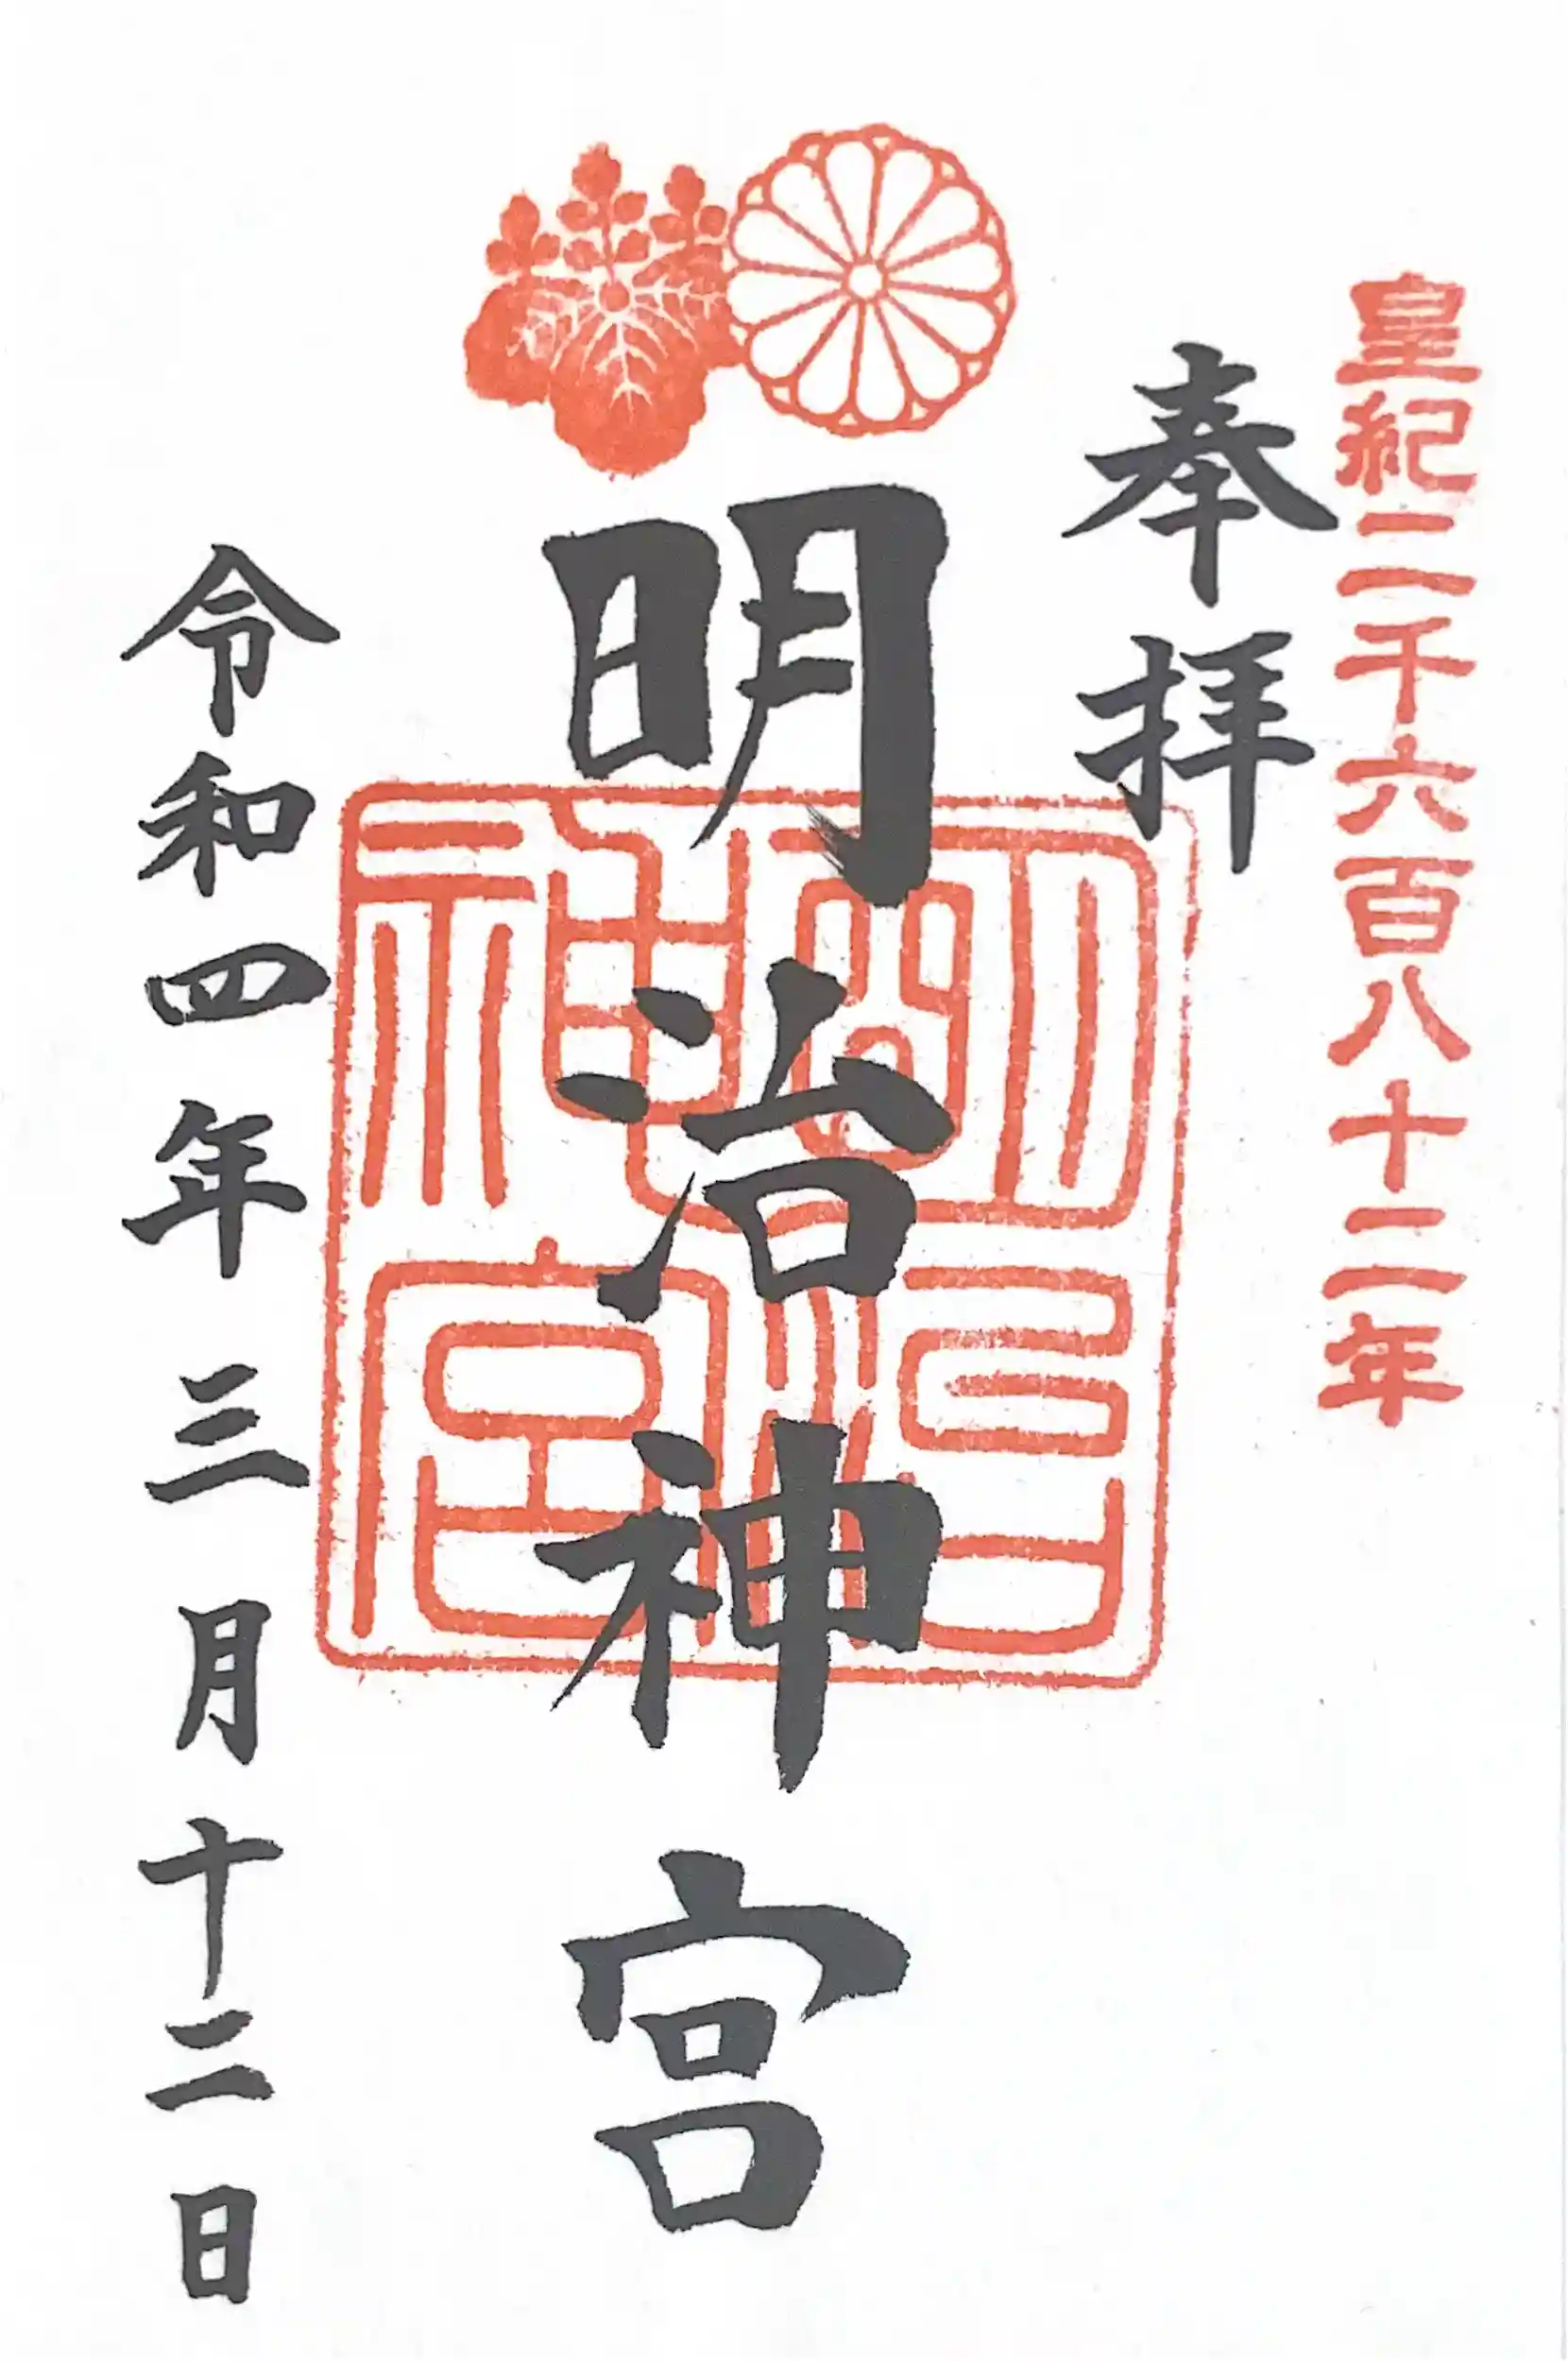 皇紀二千六百八十二年
奉拝
明治神宮
明治神宮
令和四年三月十二日